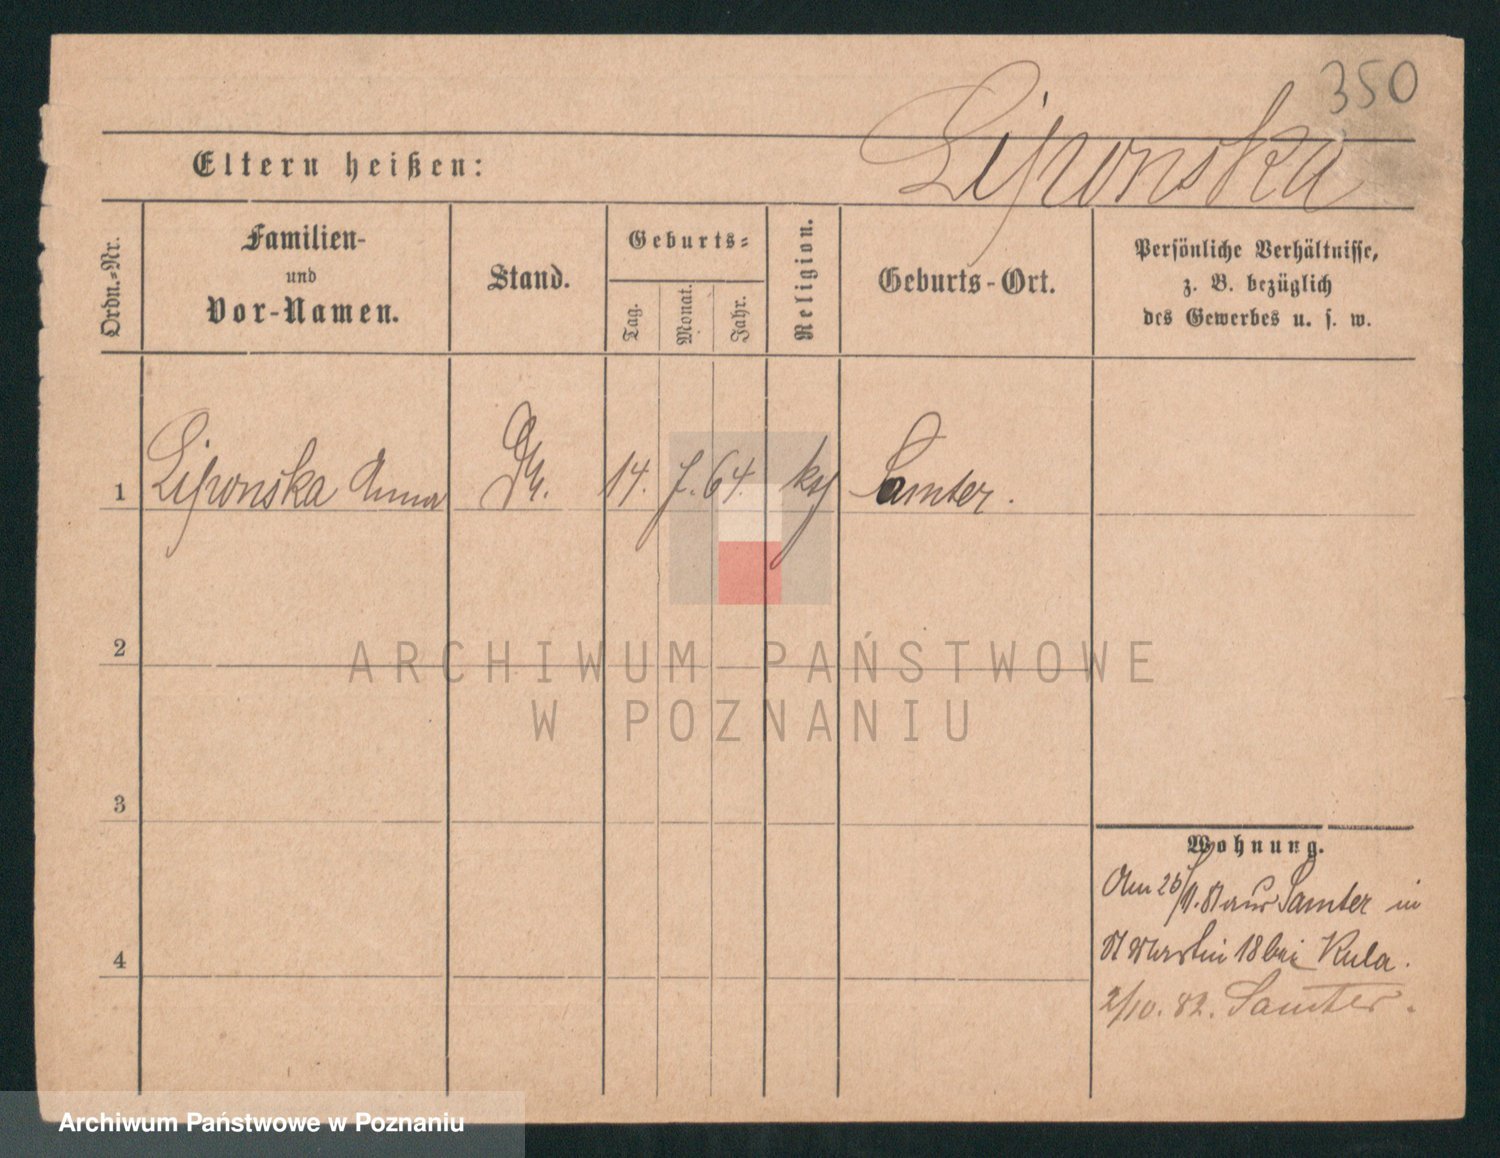 350
Liponska
Eltern heißen:
Ordn.-Nr.
Familien-
und
Vor-Namen.
Stand.
Geburts-
Tag.
Monat.
Jahr.
Religion.
Geburts-Ort.
Persönliche Verhältnisse,
z. B. bezüglich
des Gewerbes u. s. w.
1 Lipronska Anna 14. 7. 64. Samter.
2
ARCHIWUM PAŃSTWOWE
W POZNANIU
3
Wohnung.
Am aus Samter in
St Martin 18 bei Kula.
4
2/10. 82. Samter.
Archiwum Państwowe w Poznaniu